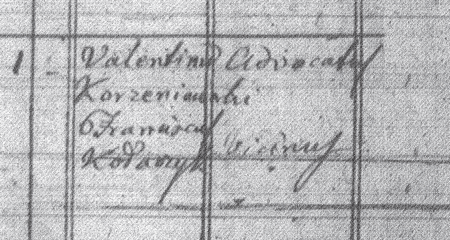 1 Valentinus Advocatus
Korzeniowski
Franciscus
Vicinus